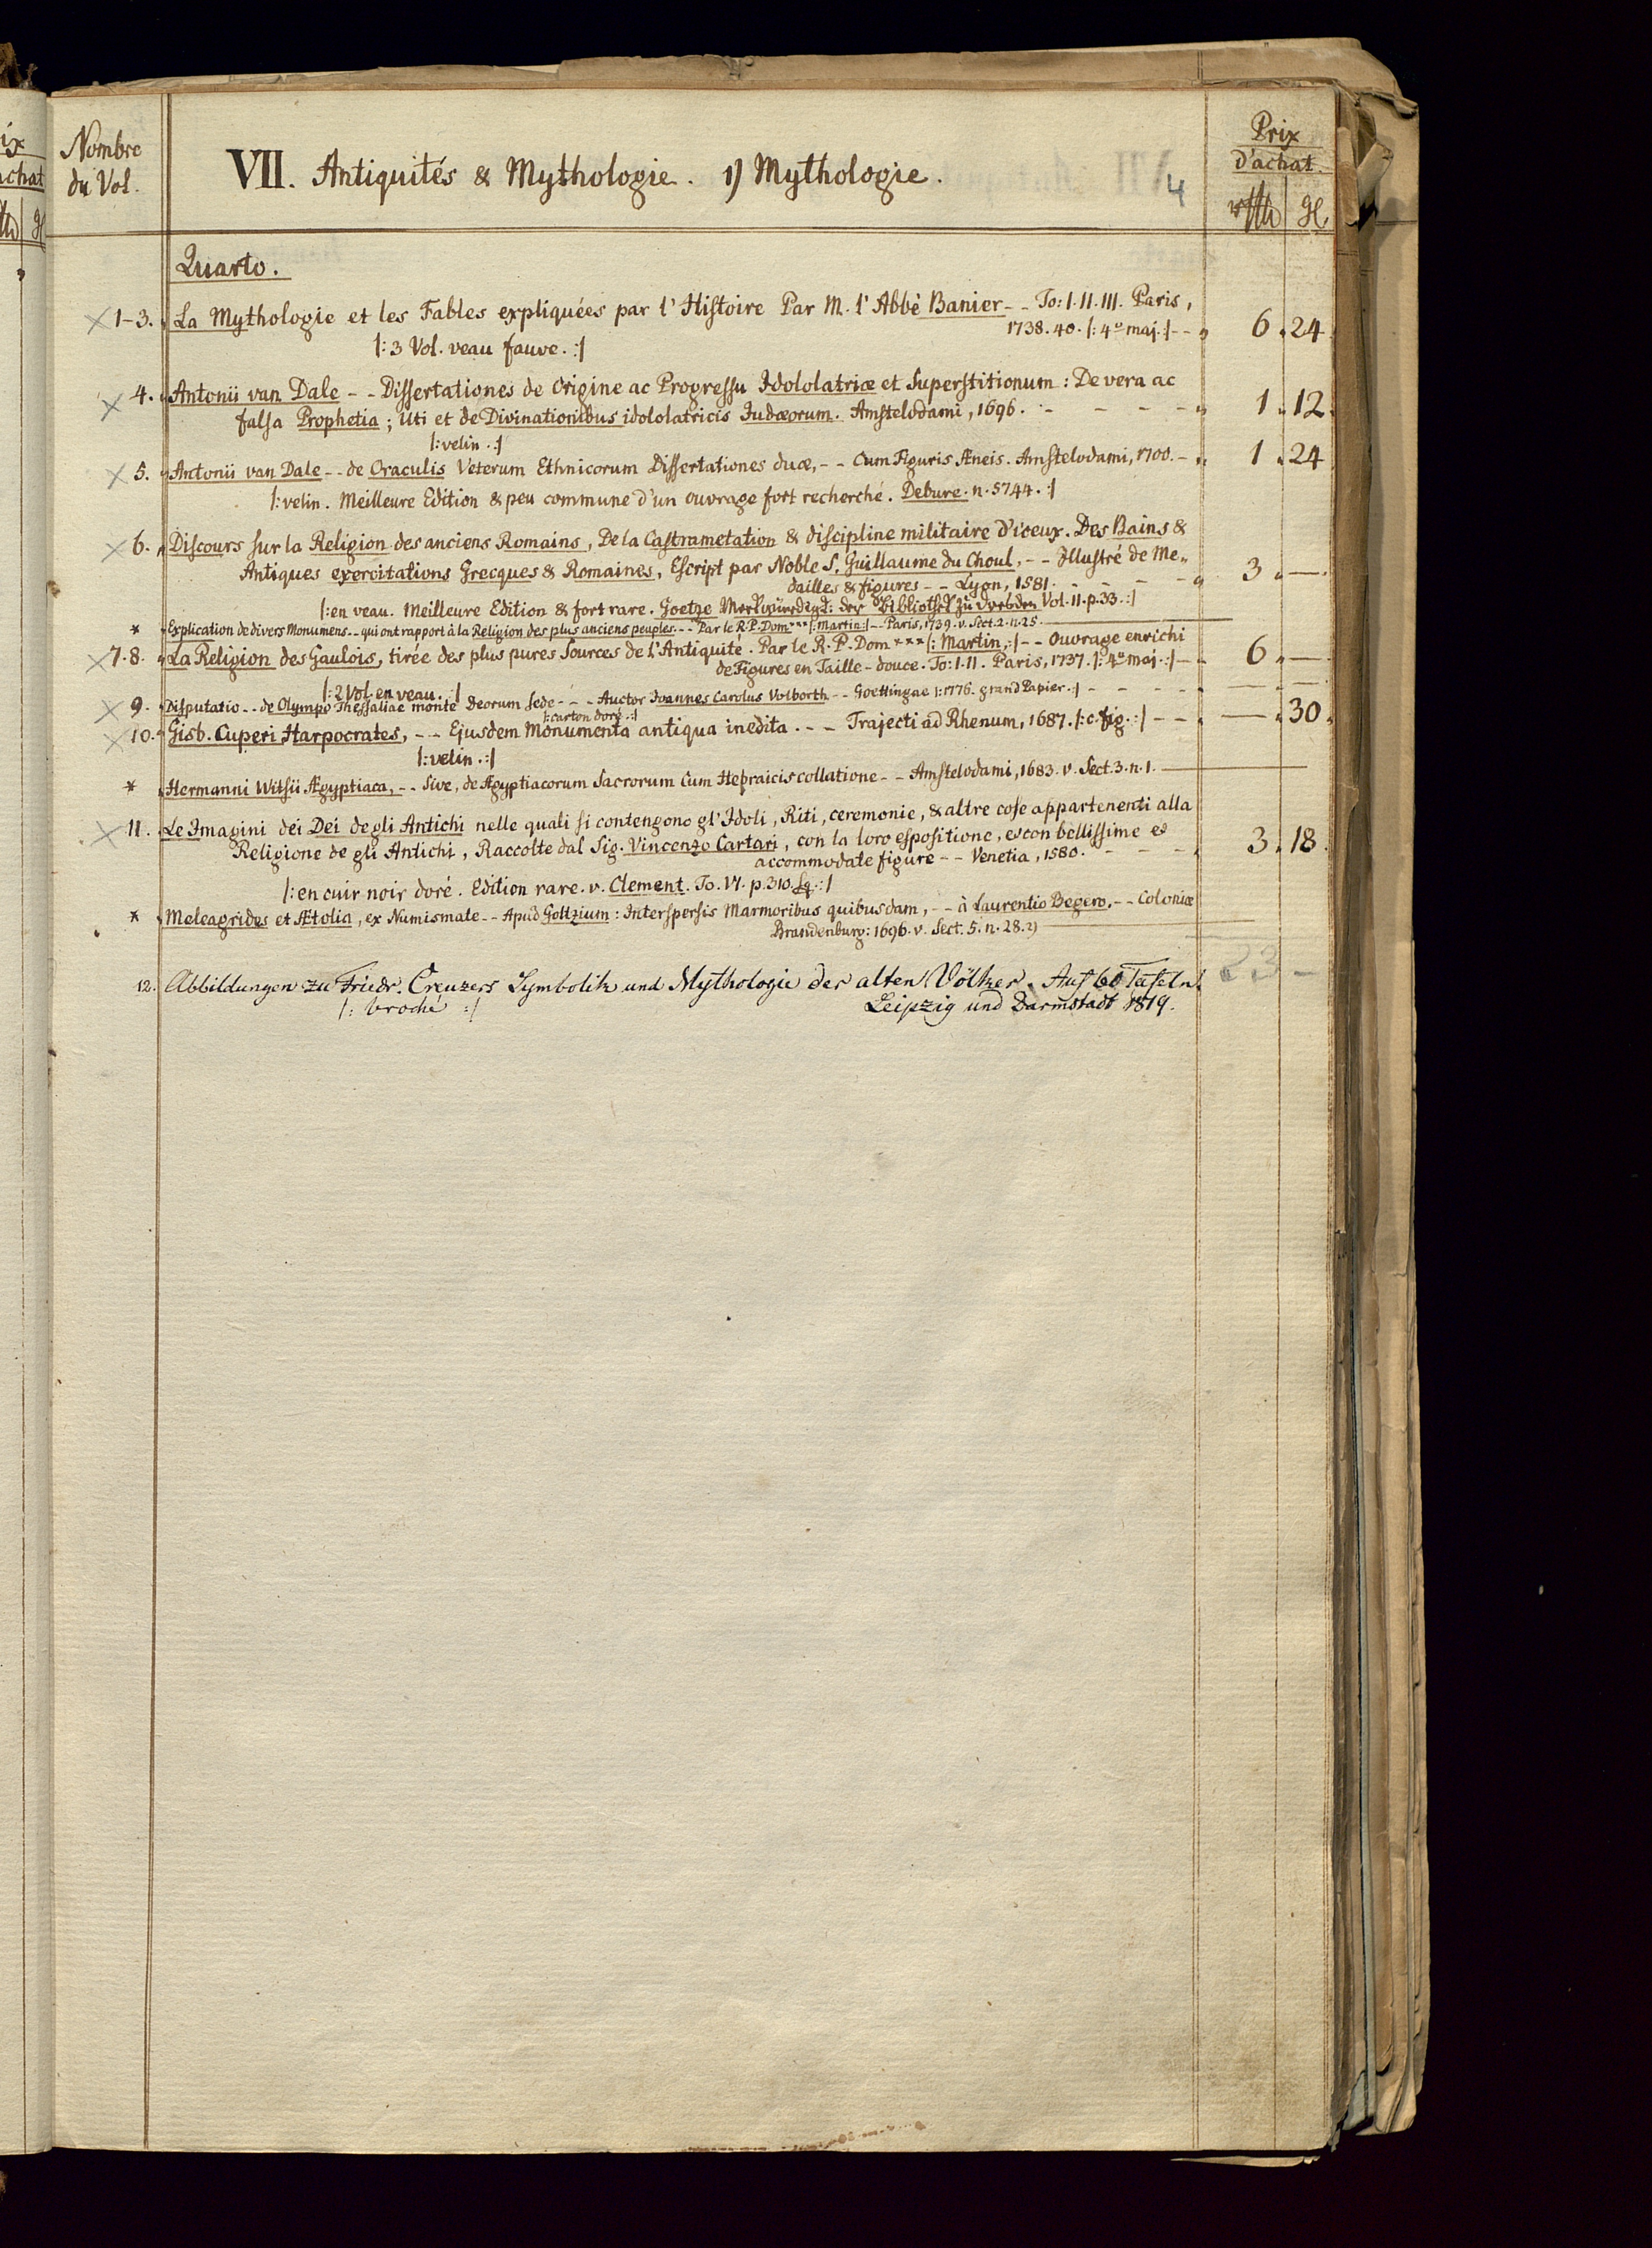 ix
achat
Nombre
du Vol.
VII. Antiquités & Mythologie. 1) Mythologie.
4
Prix
d'achat.
rthl gl.
Quarto.
1-3. La Mythologie et les Fables expliquées par l'Histoire Par M. l'Abbé Banier -- To: I. II. III. Paris,
1738. 40. |: 4º maj. :| -- 6. 24
|: 3 Vol. veau fauve. :|
4. Antonii van Dale -- Dissertationes de Origine ac Progressu Idololatriæ et Superstitionum: De vera ac
falsa Prophetia; Uti et de Divinationibus idololatricis Judæorum. Amstelodami, 1696. - - - - 1. 12
|: velin. :|
5. Antonii van Dale -- de Oraculis Veterum Ethnicorum Dissertationes duæ, -- Cum Figuris Æneis. Amstelodami, 1700. - 1. 24
|: velin. Meilleure Edition & peu commune d'un ouvrage fort recherché. Debure. n. 5744. :|
6. Discours sur la Religion des anciens Romains, De la Castrametation & discipline militaire d'iceux. Des Bains &
Antiques exercitations Grecques & Romaines, Escript par Noble S. Guillaume du Choul, -- Illustré de Me„
dailles & figures -- Lyon, 1581. - - - - 3. —
|: en veau. Meilleure Edition & fort rare. Goetze Merkwürdigk: der Bibliothek zu Dresden Vol. II. p. 33. :|
* Explication de divers Monumens -- qui ont rapport à la Religion des plus anciens peuples -- Par le R. P. Dom *** |: Martin :| -- Paris, 1739. v. Sect. 2. n. 25.
7. 8. La Religion des Gaulois, tirée des plus pures Sources de l'Antiquité. Par le R. P. Dom *** |: Martin, :| -- Ouvrage enrichi
de Figures en Taille-douce. To: I. II. Paris, 1737. |: 4º maj. :| - - 6. —
|: 2 Vol. en veau. :|
9. Disputatio -- de Olympo Thessaliae monte Deorum Sede --- Auctor Joannes Carolus Volborth -- Goettingae |: 1776. grand Papier. :| - - - - — —
|: carton doré. :|
10. Gisb. Cuperi Harpocrates, -- Ejusdem Monumenta antiqua inedita. -- Trajecti ad Rhenum, 1687. |: c. fig. :| - - — 30
|: velin. :|
* Hermanni Witsii Ægyptiaca, -- Sive, de Ægyptiacorum Sacrorum Cum Hebraicis collatione -- Amstelodami, 1683. v. Sect. 3. n. 1.
11. Le Imagini dei Dei degli Antichi nelle quali si contengono gl'Idoli, Riti, ceremonie, & altre cose appartenenti alla
Religione de gli Antichi, Raccolte dal Sig. Vincenzo Cartari, con la loro espositione, et con bellissime et
accommodate figure -- Venetia, 1580. - - - - 3. 18
|: en cuir noir doré. Edition rare. v. Clement. To. VI. p. 310. sq. :|
* Meleagrides et Ætolia, ex Numismate -- Apud Goltzium: Interspersis Marmoribus quibusdam, -- à Laurentio Begero, -- Coloniæ
Brandenburg: 1696. v. Sect. 5. n. 28. 2)
23 -
12. Abbildungen zu Friedr. Creuzers Symbolik und Mythologie der alten Völker. Auf 60 Tafeln.
|: broché :| Leipzig und Darmstadt 1819.